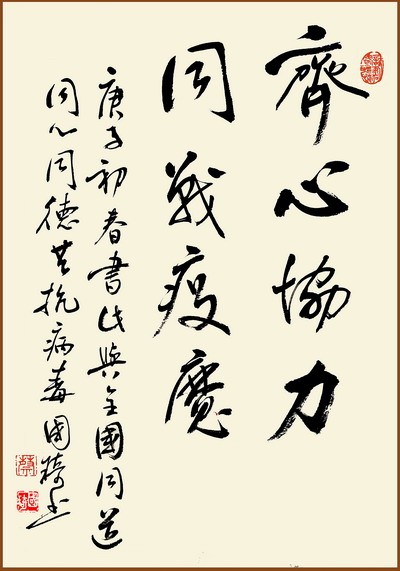 齊心協力
同戰疫魔
庚子初春書此與全國同道
同心同德共抗病毒國